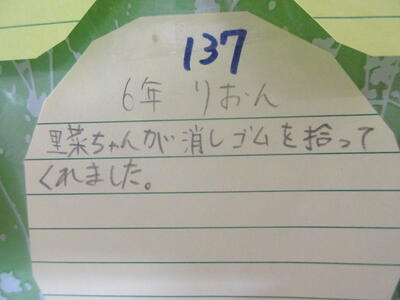 137
6年 りおん
里菜ちゃんが消しゴムを拾って
くれました。